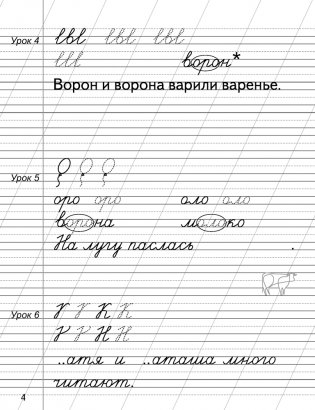 Урок 4
ворон*
Ворон и ворона варили варенье.
Урок 5
оро оро оло оло
ворона молоко
На лугу паслась .
Урок 6 К К
Н Н
..атя и ..аташа много
читают.
4